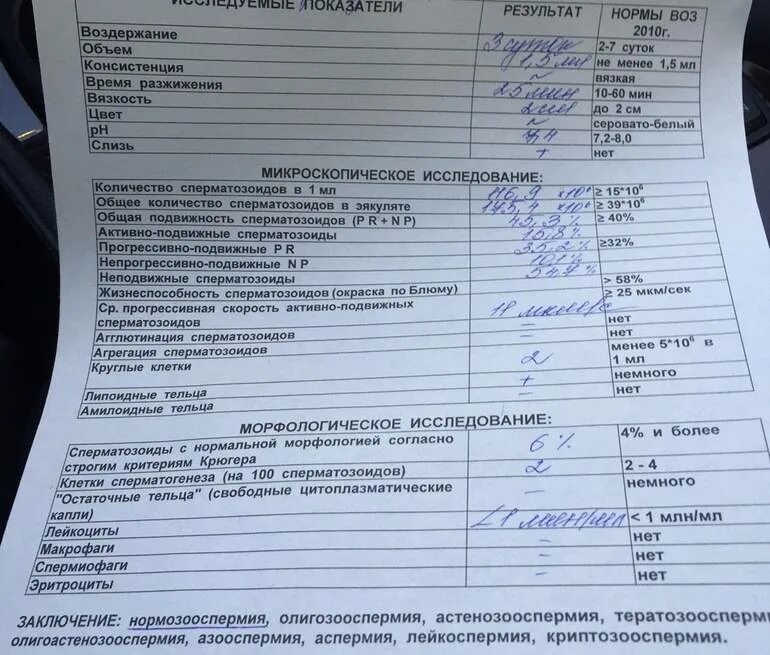 ИССЛЕДУЕМЫЕ ПОКАЗАТЕЛИ РЕЗУЛЬТАТ НОРМЫ ВОЗ 2010г.
Воздержание 3 суток 2-7 суток
Объем 1,5 мл не менее 1,5 мл
Консистенция ~ вязкая
Время разжижения 25 мин 10-60 мин
Вязкость 2 см до 2 см
Цвет ~ серовато-белый
pH 7,4 7,2-8,0
Слизь + нет
МИКРОСКОПИЧЕСКОЕ ИССЛЕДОВАНИЕ:
Количество сперматозоидов в 1 мл 116,9 *10⁶ ≥ 15*10⁶
Общее количество сперматозоидов в эякуляте 175,4 *10⁶ ≥ 39*10⁶
Общая подвижность сперматозоидов (P R + N P) 45,3 % ≥ 40%
Активно-подвижные сперматозоиды 15,8%
Прогрессивно-подвижные P R 35,2 % ≥32%
Непрогрессивно-подвижные N P 10,1 %
Неподвижные сперматозоиды 54,7 %
Жизнеспособность сперматозоидов (окраска по Блюму) > 58%
Ср. прогрессивная скорость активно-подвижных ≥ 25 мкм/сек
сперматозоидов
Агглютинация сперматозоидов – нет
Агрегация сперматозоидов – нет
Круглые клетки 2 менее 5*10⁶ в
1 мл
Липоидные тельца + немного
Амилоидные тельца – нет
МОРФОЛОГИЧЕСКОЕ ИССЛЕДОВАНИЕ:
Сперматозоиды с нормальной морфологией согласно 6 % 4% и более
строгим критериям Крюгера
Клетки сперматогенеза (на 100 сперматозоидов) 2 2 - 4
"Остаточные тельца" (свободные цитоплазматические – немного
капли)
Лейкоциты <1 млн/мл < 1 млн/мл
Макрофаги – нет
Спермиофаги – нет
Эритроциты – нет
ЗАКЛЮЧЕНИЕ: нормозооспермия, олигозооспермия, астенозооспермия, тератозоосперм
олигоастенозооспермия, азооспермия, аспермия, лейкоспермия, криптозооспермия.